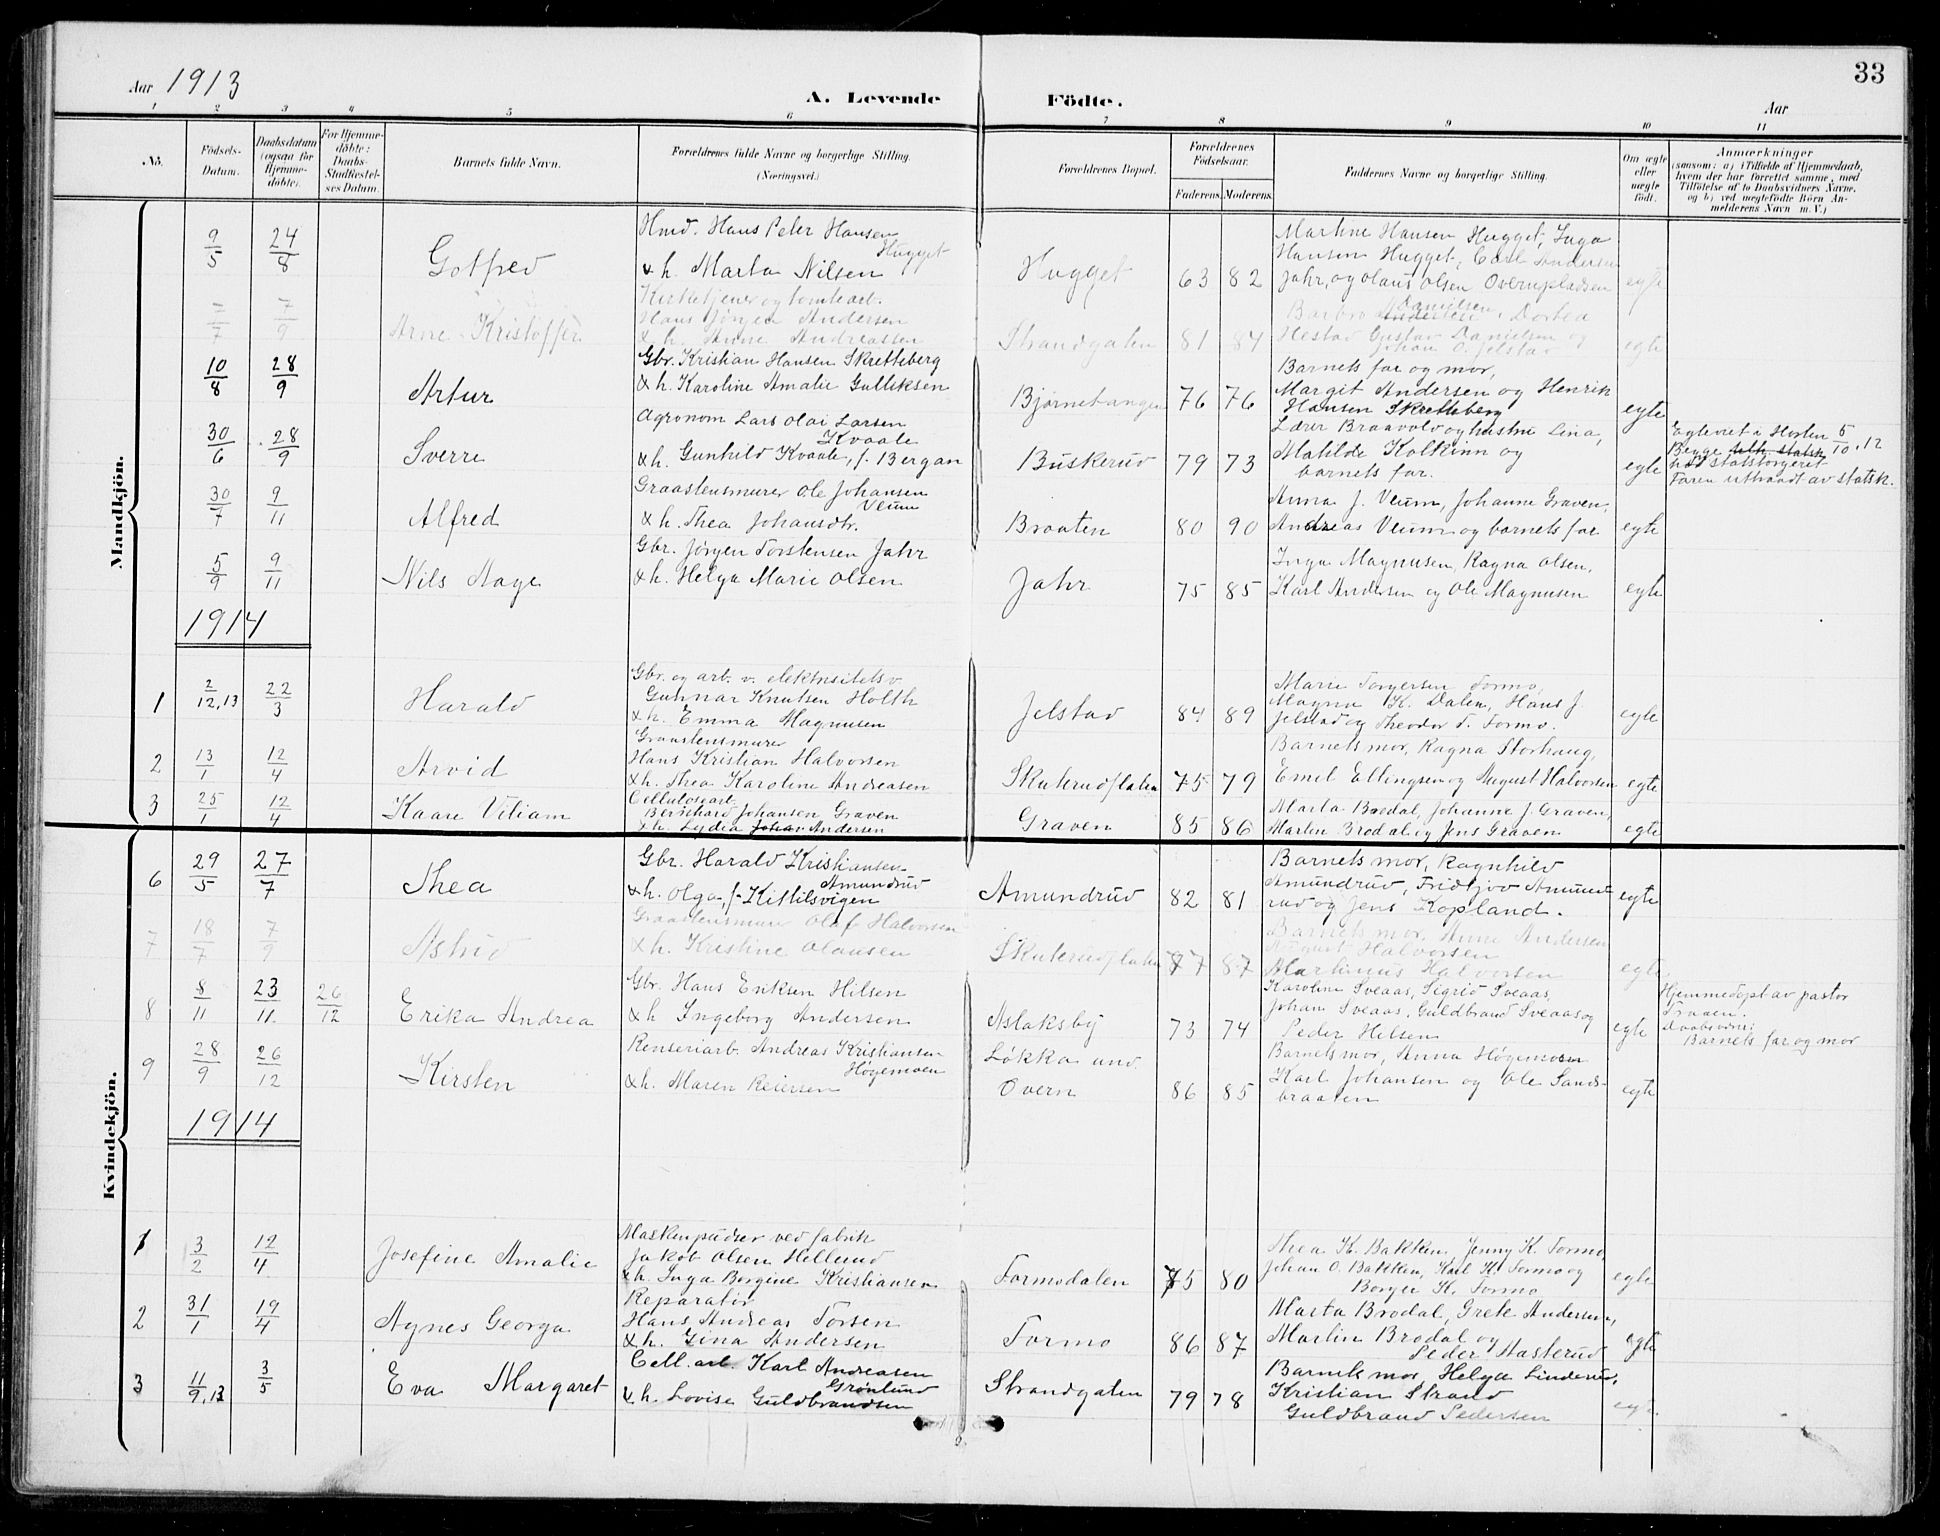 33
Aar 1913
A. Levende Födte.
Aar
1 2 3 4 5 6 7 8 9 10 11
No.
Födsels-Datum.
Daabsdatum (ogsaa for Hjemmedöbte).
For Hjemmedöbte: Daabs-Stadfæstelses Datum.
Barnets fulde Navn.
Forældrenes fulde Navne og borgerlige Stilling. (Næringsvei.)
Forældrenes Bopæl.
Forældrenes Födselsaar.
Faderens. Moderens.
Faddernes Navne og borgerlige Stilling.
Om ægte eller uægte födt.
Anmærkninger
(saasom: a) i Tilfælde af Hjemmedaab, hvem der har forrettet samme, med Tilföielse af to Daabsvidners Navne, og b) ved uægtefödte Börn Anmelderens Navn m. V.)
Mandkjön.
9/5 24/8 Gotfred
Hmd. Hans Peter Hansen
Hugget
& h. Marta Nilsen
Hugget 63 82
Martine Hansen Hugget, Inga
Hansen Hugget, Carl Andersen
Jahr, og Olaus Olsen Overnpladsen
egte
7/7 7/9 Arne Kristoffer
Kirketjener og tomtearb.
Hans Jørgen Andersen
& h. Anne Andreassen
Strandgaten 81 84
Barbro Danielsen, Dortea
Hestad Gustav Danielsen og
Johan O. Jelstad
egte
10/8 28/9 Artur
Gbr. Kristian Hansen Skretteberg
& h. Karoline Amalie Gulliksen
Bjørnetangen 76 76
Barnets far og mor,
Margit Andersen og Henrik
Hansen Skretteberg
egte
30/6 28/9 Sverre
Agronom Lars Olai Larsen
Kvaale
& h. Gunhild Kvaale, f. Bergan
Buskerud 79 73
Lærer Braavold og hustru Lina,
Matilde Kolkinn og
barnets far.
egte
Egteviet i Horten 5/10.12
Begge
statsborgeret
Faren uttraadt av statsk.
30/7 9/11 Alfred
Graastensmurer Ole Johansen
Veum
& h. Thea Johansdtr.
Braaten 80 90
Anna J. Veum, Johanne Graven,
Andreas Veum og barnets far
egte
5/9 9/11 Nils Aage
Gbr. Jørgen Torstensen Jahr
& h. Helga Marie Olsen
Jahr 75 85
Inga Magnusen, Ragna Olsen,
Karl Andersen og Ole Magnusen
egte
1914
1 2/12,13 22/3 Harald
Gbr. og arb. v. elektrisitetsv.
Gunnar Knutsen Holth
& h. Emma Magnusen
Jelstad 84 89
Marie Torgersen Formo,
Magna K. Dalen, Hans J.
Jelstad og Theodor T. Formo.
egte
2 13/1 12/4 Arvid
Graastensmurer
Hans Kristian Halvorsen
& h. Thea Karoline Andreasen
Skuterudflaten 75 79
Barnets mor, Ragna Storhaug,
Emil Ellingsen og August Halvorsen
egte
3 25/1 12/4 Kaare Viliam
Cellulosearb.
Bernhard Johansen Graven
& h. Lydia Johan Andersen
Graven 85 86
Marta Brodal, Johanne J. Graven,
Martin Brodal og Jens Graven
egte
Kvindekjön.
6 29/5 27/7 Thea
Gbr. Harald Kristiansen
Amundrud
& h. Olga, f. Kittilsvigen
Amundrud 82 81
Barnets mor, Ragnhild
Amundrud, Fridtjov Amund-
rud og Jens Kopland.
egte
7 18/7 7/9 Astrid
Graastensmurer Olaf Halvorsen
& h. Kristine Olausen
Skuterudflaten 77 87
Barnets mor, Anne Andersen
August Halvorsen
Martinius Halvorsen
egte
8 8/11 23/11. 26/12 Erika Andrea
Gbr. Hans Eriksen Hilsen
& h. Ingeborg Andersen
Aslaksby 73 74
Karoline Sveaas, Sigrid Sveaas,
Johan Sveaas, Guldbrand Sveaas og
Peder Helsen
egte
Hjemmedøpt av pastor
Traaen.
Daabsvidne:
Barnets far og mor
9 28/9 26/12 Kirsten
Renseriarb. Andreas Kristiansen
Høgemoen
& h. Maren Reiersen
Løkka und.
Overn 86 85
Barnets mor, Anna Høgemoen
Karl Johansen og Ole Sands-
braaten
egte
1914
1 3/2 12/4 Josefine Amalie
Maskinpudser ved fabrik
Jakob Olsen Hellerud
& h. Inga Borgine Kristiansen
Formodalen 75 80
Thea K. Bakken, Jenny K. Formo,
Johan O. Bakken, Karl H. Formo og
Borger H. Formo
egte
2 31/1 19/4 Agnes Georga
Reparatør
Hans Andreas Torsen
& h. Gina Andersen
Formo 86 87
Marta Brodal, Grete Andersen,
Martin Brodal og
Peder Aasterud
egte
3 11/9,13 3/5 Eva Margaret
Cell. arb. Karl Andreasen
Grønlund
& h. Lovise Guldbrandsen
Strandgaten 79 78
Barnets mor, Helga Linderud,
Kristian Strand
Guldbrand Pedersen
egte